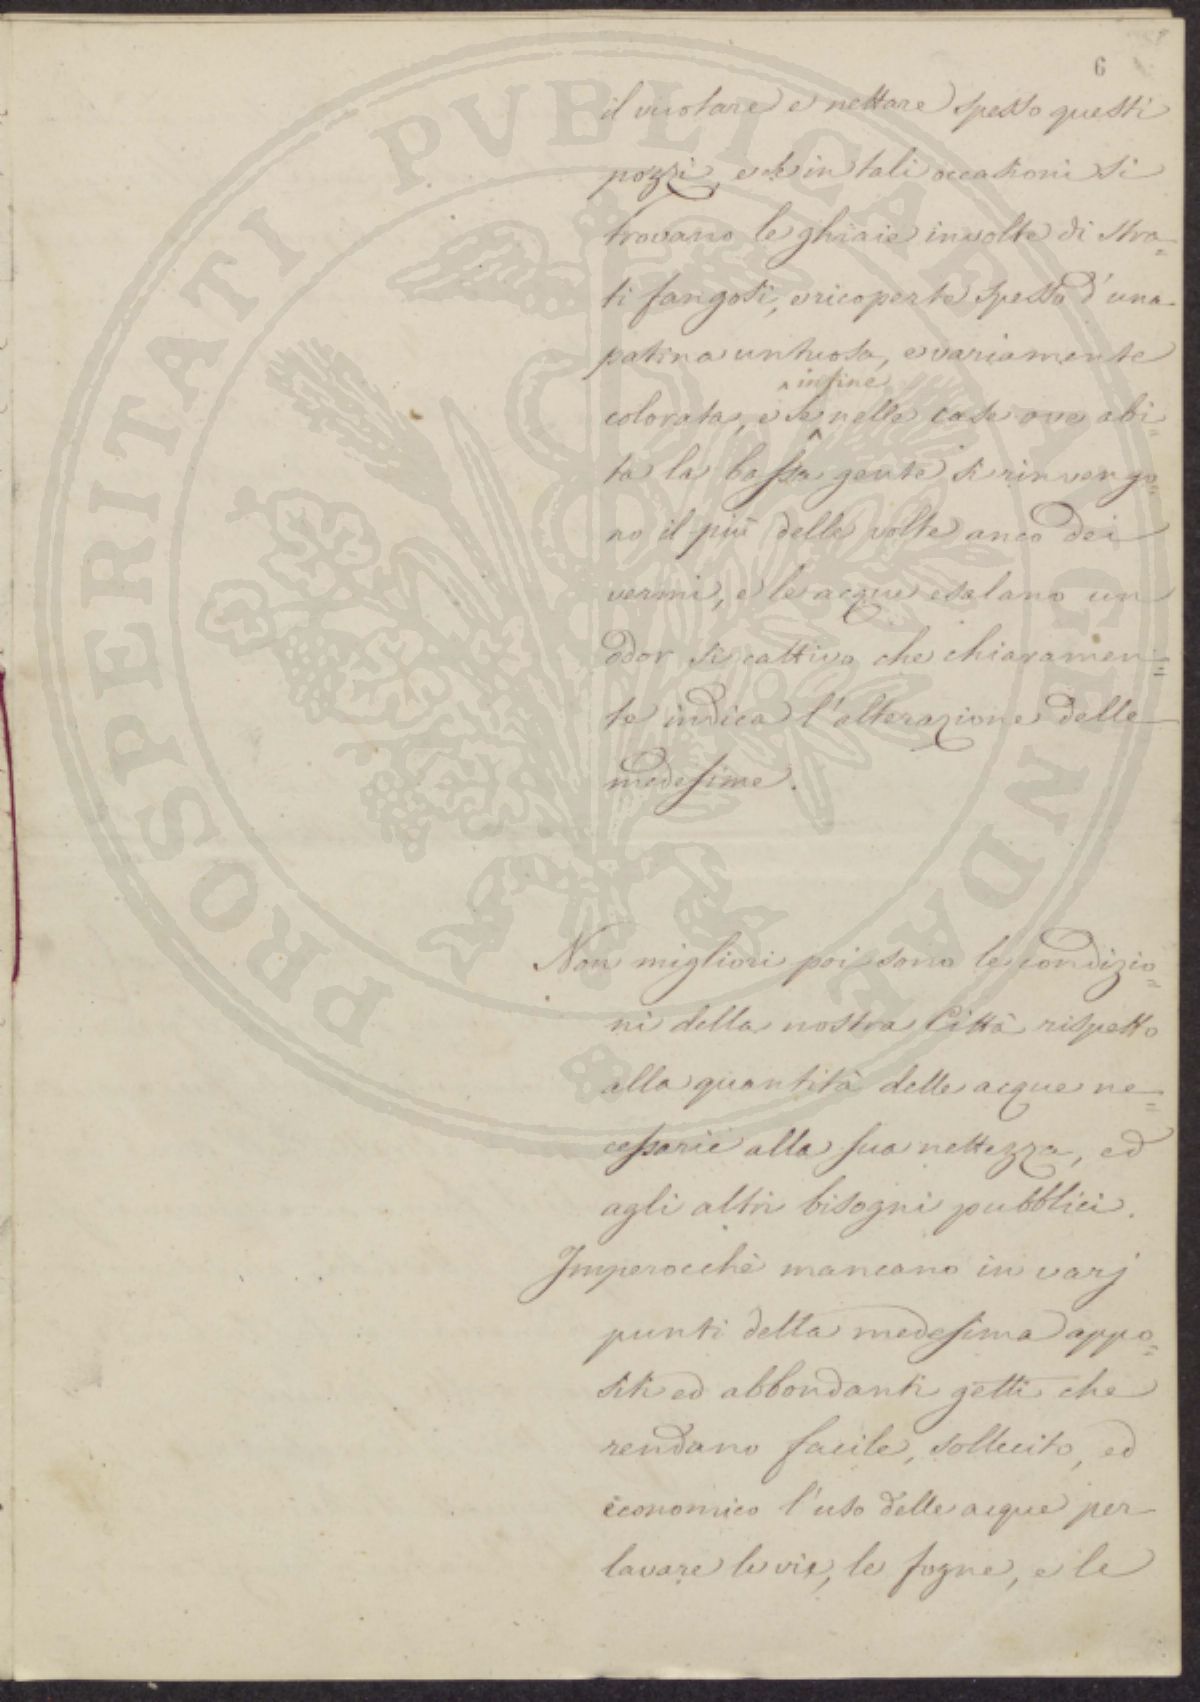 6
il vuotare e nettare spesso questi
pozzi, e se in tali occasioni si
trovano le ghiaie involte di stra=
ti fangosi, e ricoperte spesso d'una
patina untuosa, e variamente
infine
colorata, e se nelle case ove abi=
ta la bassa gente si rinvengo=
no il più delle volte anco dei
vermi, e le acque esalano un
odor sì cattivo che chiaramen=
te indica l'alterazione delle
medesime.
Non migliori poi sono le condizio=
ni della nostra Città rispetto
alla quantità delle acque ne=
cessarie alla sua nettezza, ed
agli altri bisogni pubblici.
Imperocchè mancano in varj
punti della medesima appo=
siti ed abbondanti getti che
rendano facile, sollecito, ed
economico l'uso delle acque per
lavare le vie, le fogne, e le
PROSPERITATI PVBLICAE AVGENDAE